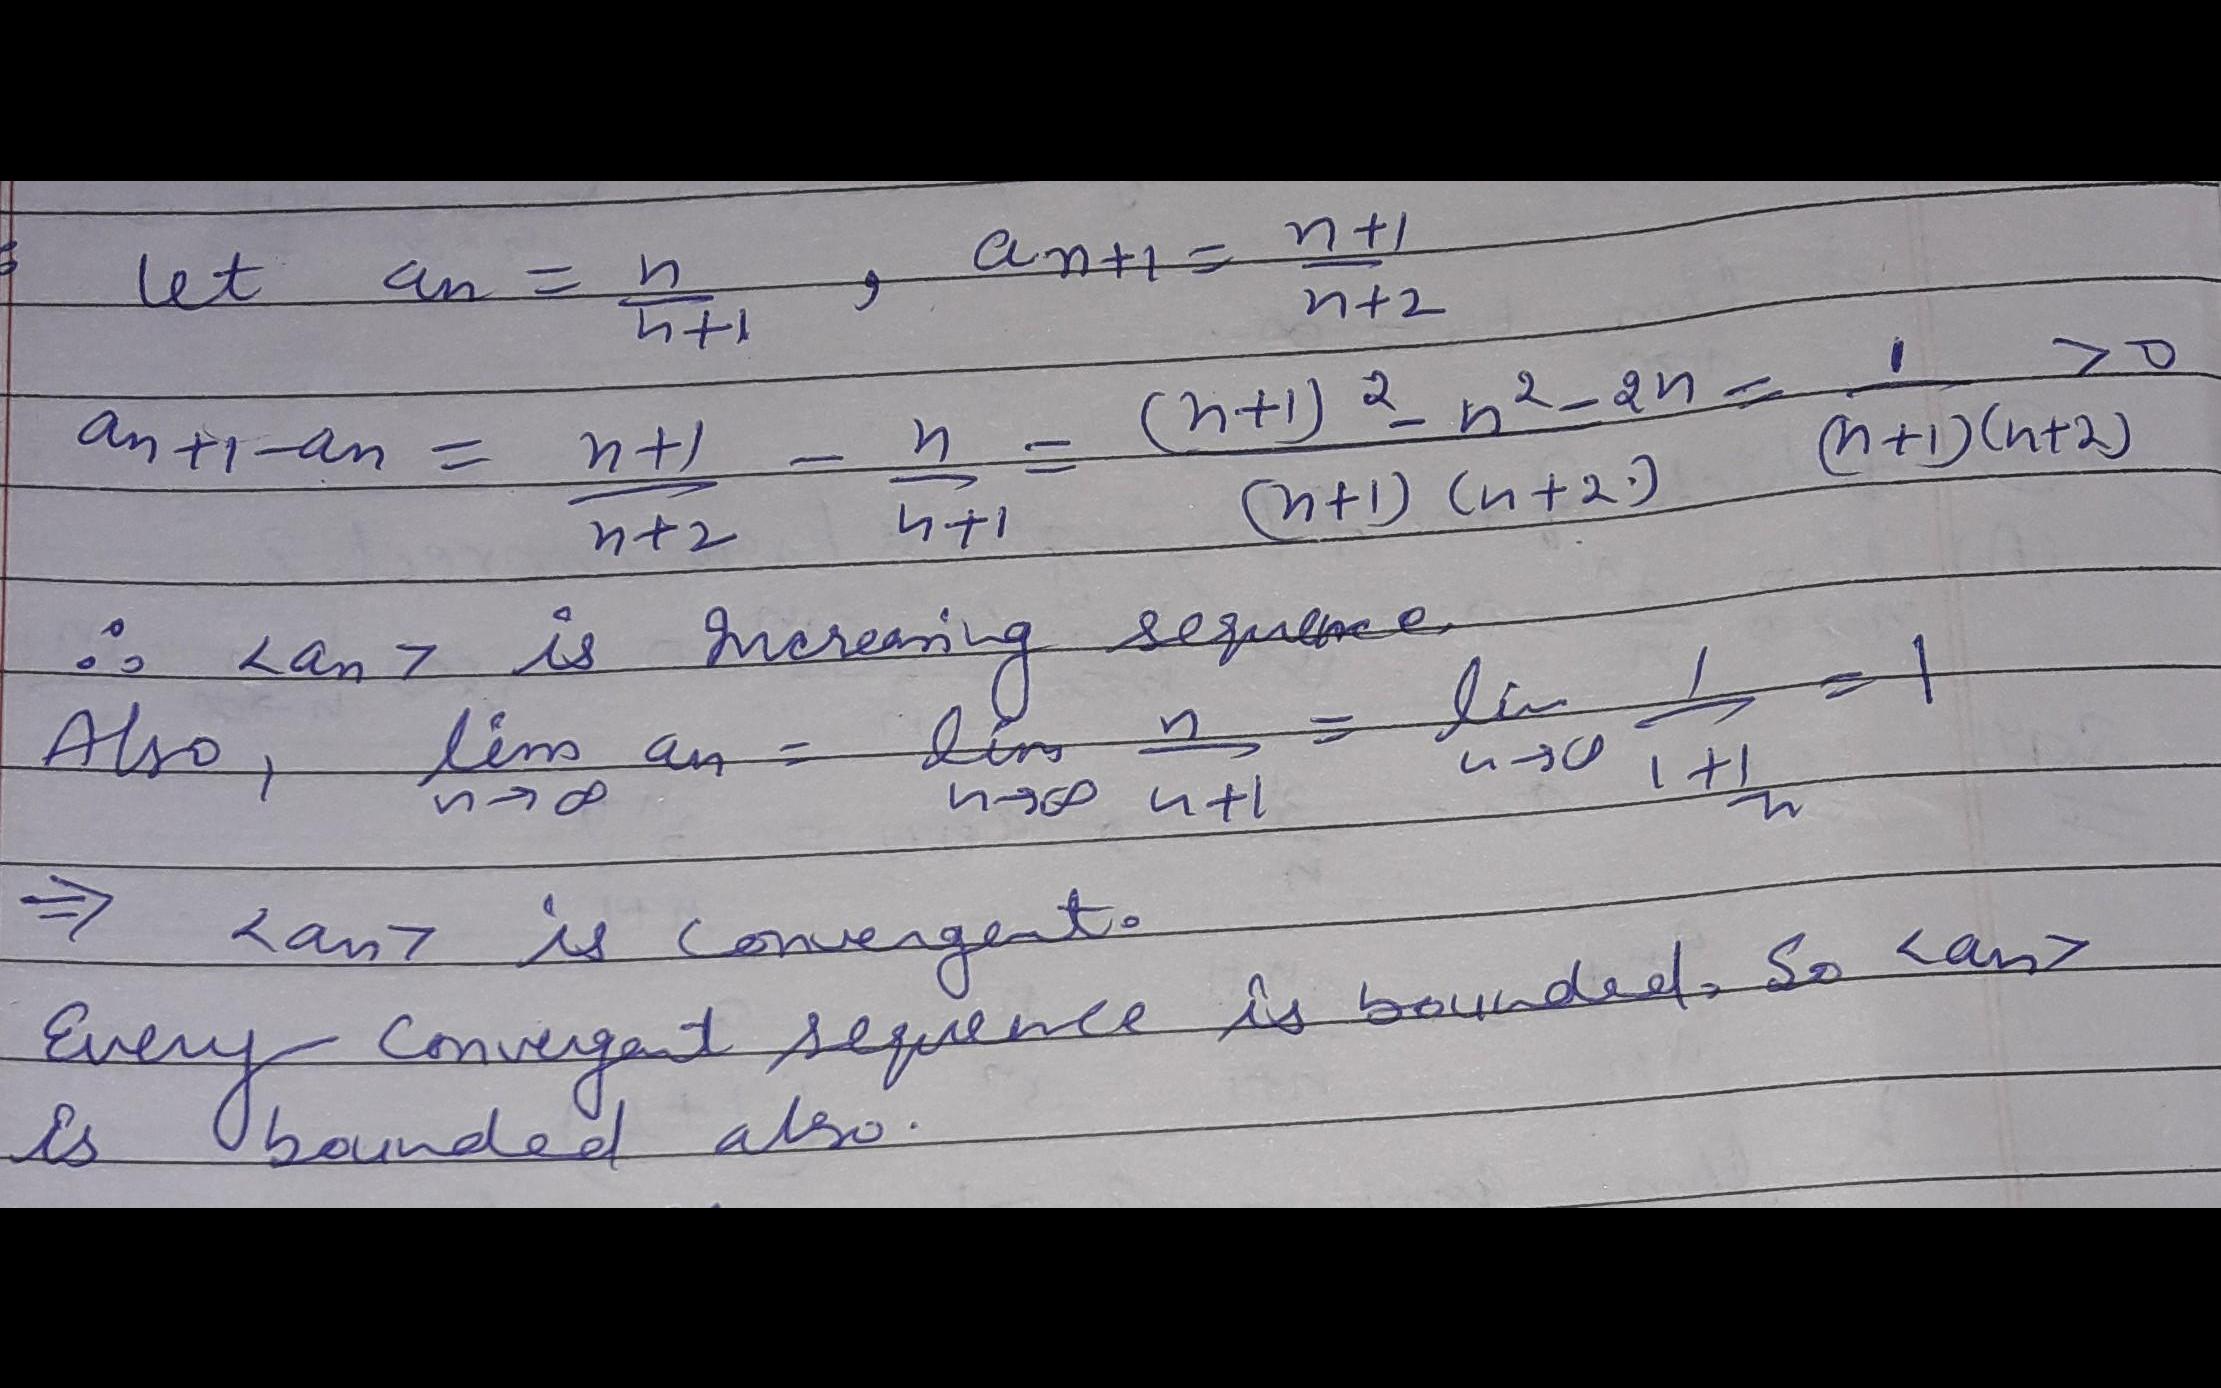 let an = n/n+1 , an+1 = n+1/n+2
an+1-an = n+1/n+2 - n/n+1 = (n+1)²-n²-2n/(n+1)(n+2) = 1/(n+1)(n+2) >0
∴ <an> is Increasing sequence.
Also, lim n→∞ an = lim n→∞ n/n+1 = lim n→∞ 1/1+1/n = 1
⇒ <an> is convergent.
Every convergent sequence is bounded. So <an>
is bounded also.